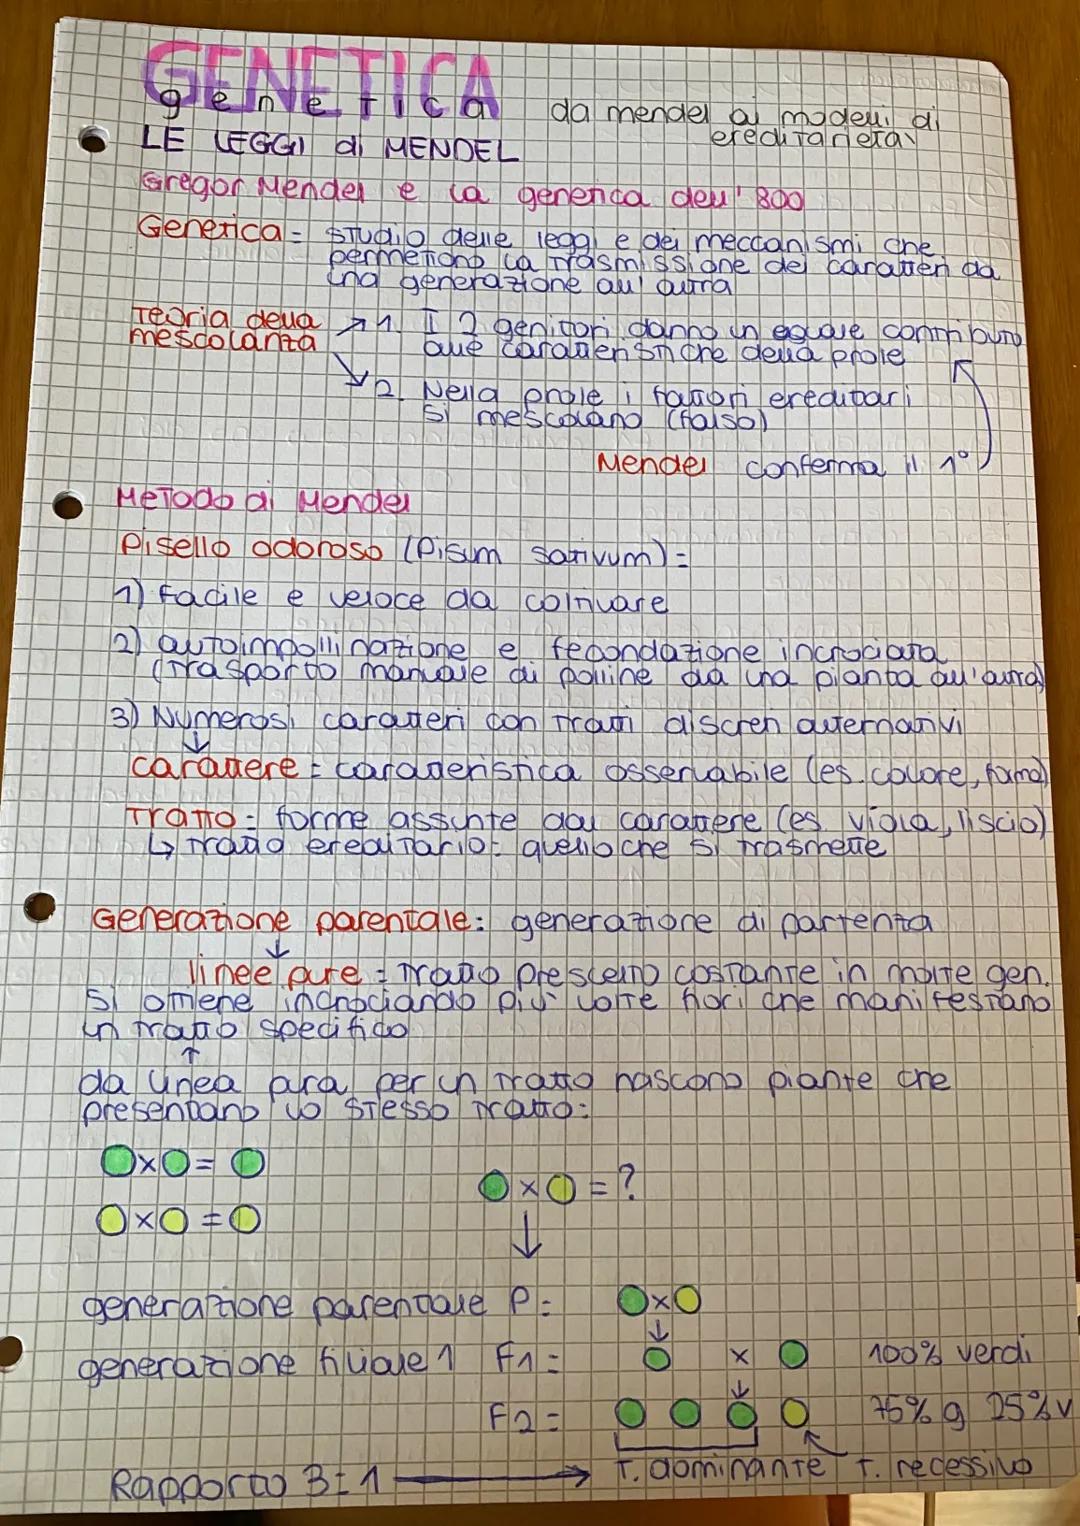 GENETICA
genetica da mendel ai modelli di
ereditarietà
LE LEGGI di MENDEL
Gregor Mendel e la genetica dell'800
Genetica = studio delle leggi e dei meccanismi che
permettono la trasmissione dei caratteri da
una generazione all'altra
Teoria della → 1. I 2 genitori danno un eguale contributo
mescolanza alle caratteristiche della prole
↘ 2. Nella prole i fattori ereditari
si mescolano (falso)
Mendel conferma il 1°
Metodo di Mendel
Pisello odoroso (Pisum sativum) =
1) facile e veloce da coltivare
2) autoimpollinazione e fecondazione incrociata
(trasporto manuale di polline da una pianta all'altra)
3) Numerosi caratteri con tratti discreti alternativi
↓
carattere = caratteristica osservabile (es. colore, forma)
Tratto = forme assunte dal carattere (es viola, liscio)
↳ tratto ereditario = quello che si trasmette
Generazione parentale: generazione di partenza
↓
linee pure = tratto presceltto costante in molte gen.
si ottiene incrociando più volte fiori che manifestano
un tratto specifico
↑
da linea pura per un tratto nascono piante che
presentano lo stesso tratto:
x =
x = ?
x =
↓
generazione parentale P = x
↓
generazione filiale 1 F1 = x 100% verdi
↓
F2 = 75% g 25% v
Rapporto 3:1 → T. dominante T. recessivo